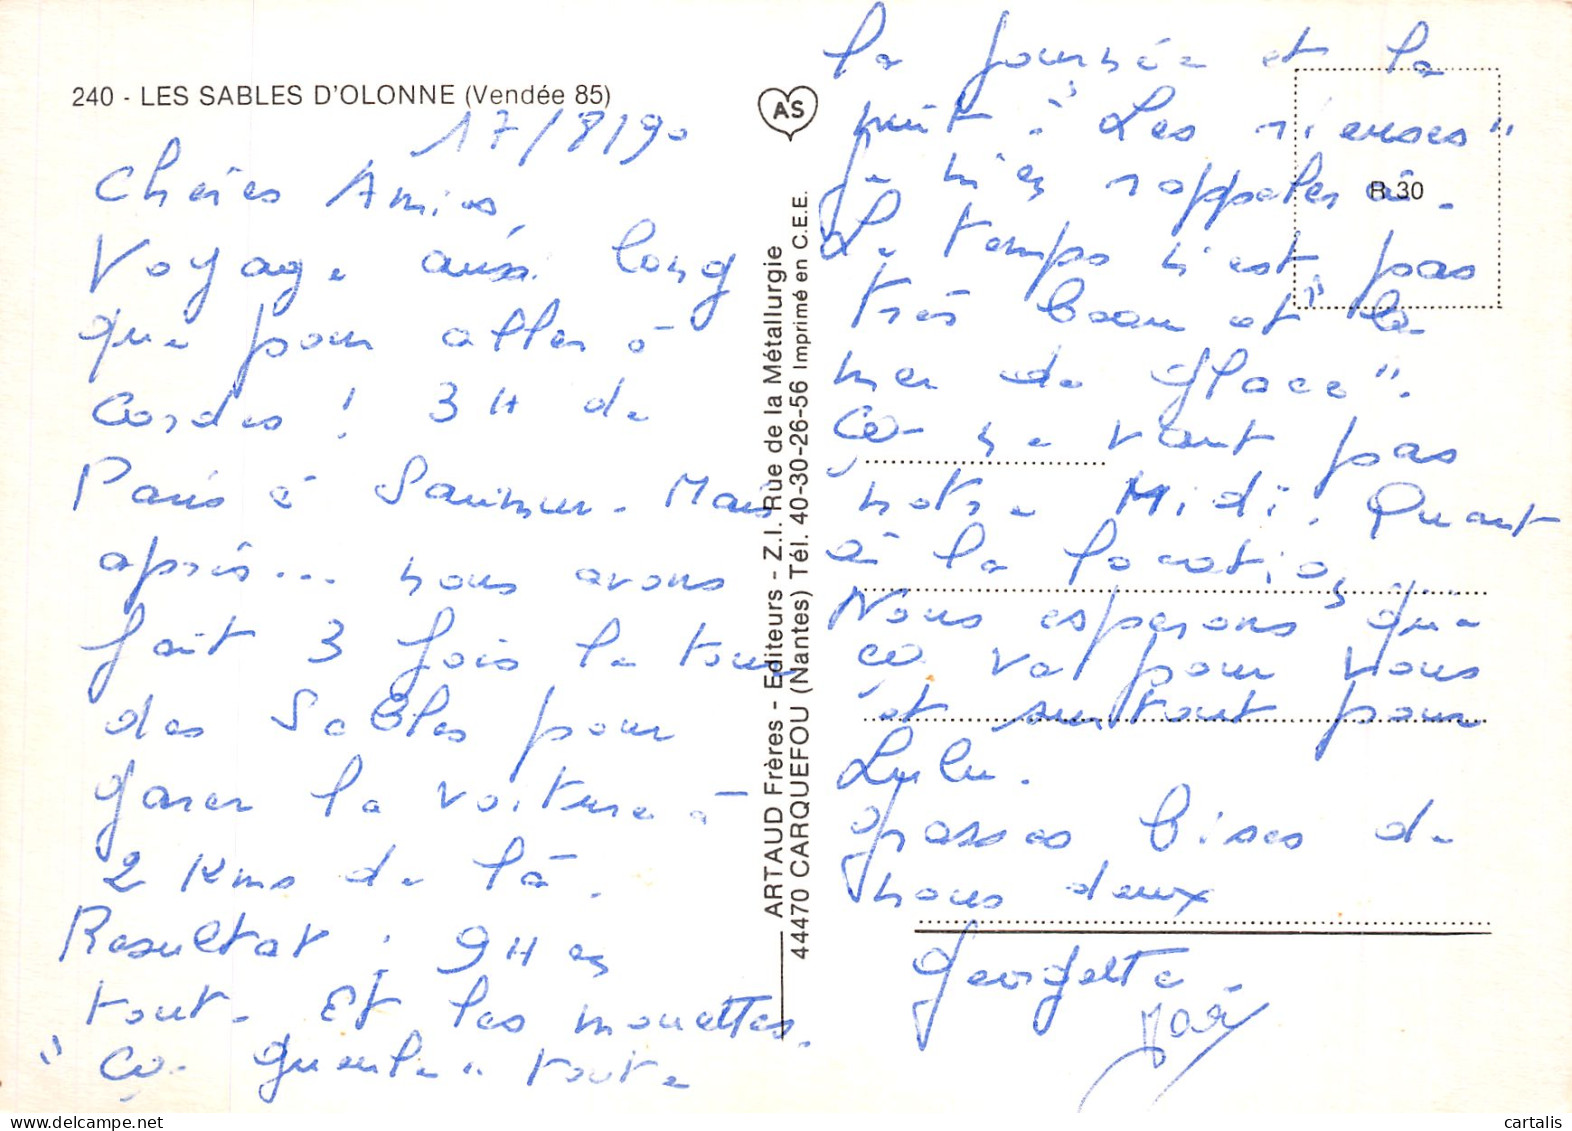 240 - LES SABLES D'OLONNE (Vendée 85)
17/8/90
Chères Amies,
Voyage aussi long
que pour aller à
Cordes ! 3H de
Paris à Saumur. Mais
après... nous avons
fait 3 fois le tour
des Sables pour
garer la voiture à
2 Kms de là.
Resultat : 9H en
tout. Et les mouettes.
"ça gueule" toute
AS
ARTAUD Frères - Editeurs - Z.I. Rue de la Métallurgie
44470 CARQUEFOU (Nantes) Tél. 40-30-26-56 Imprimé en C.E.E.
R 30
la journée et la
nuit : "Les rieuses"
je m'en rappelerai.
Le temps n'est pas
très beau et "la
mer de glace".
ça ne vaut pas
notre Midi. Quant
à la location...
Nous esperons que
ça va pour vous
et surtout pour
Lulu.
grosses bises de
nous deux
Georgette
cartalis
www.delcampe.net